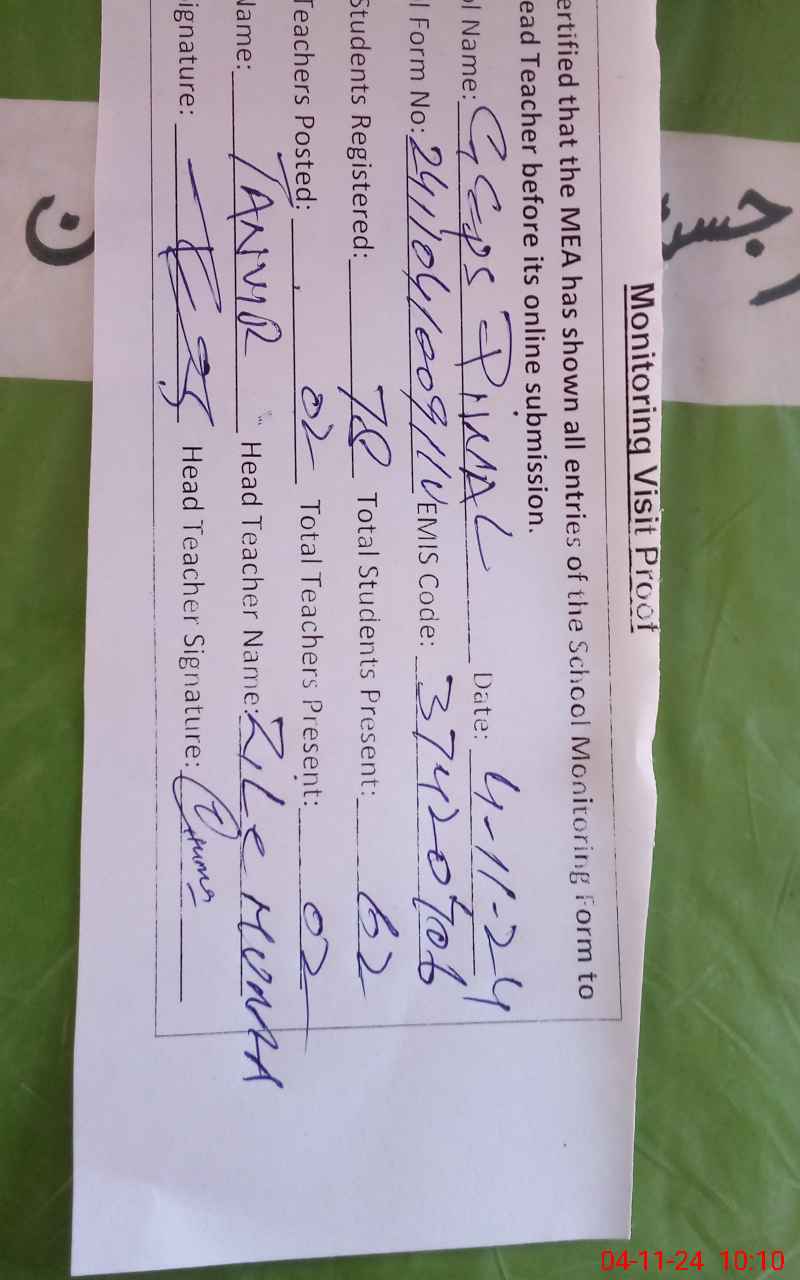 Monitoring Visit Proof
ertified that the MEA has shown all entries of the School Monitoring Form to
ead Teacher before its online submission.
ol Name: GGPS PINDAL Date: 4-11-24
l Form No: EMIS Code:
Students Registered: 78 Total Students Present: 62
Teachers Posted: 02 Total Teachers Present: 02
Name: TANVIR Head Teacher Name: ZILE HUMAA
ignature: Head Teacher Signature:
04-11-24 10:10